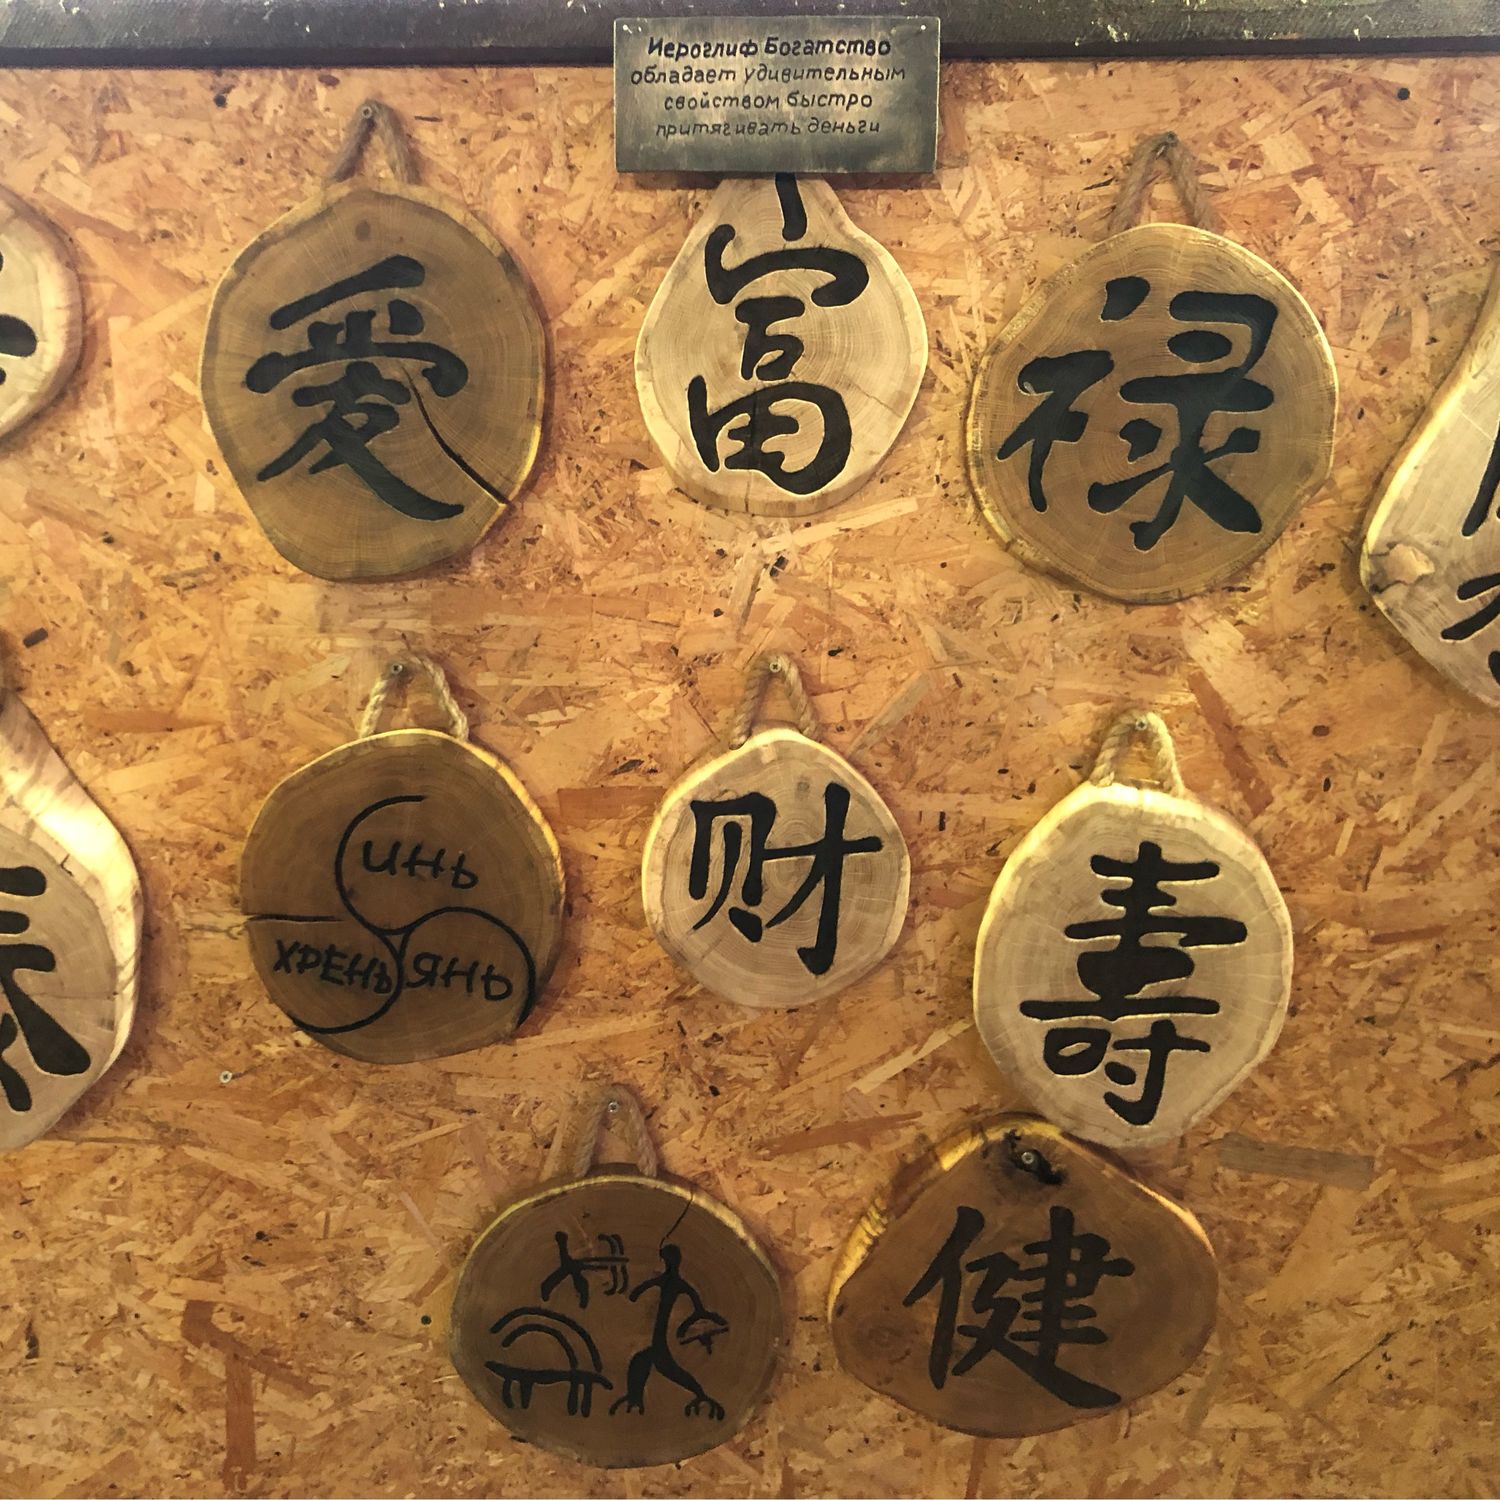 Иероглиф Богатство
обладает удивительным
свойством быстро
притягивать деньги
爱
富
禄
инь
хрень янь
财
寿
健